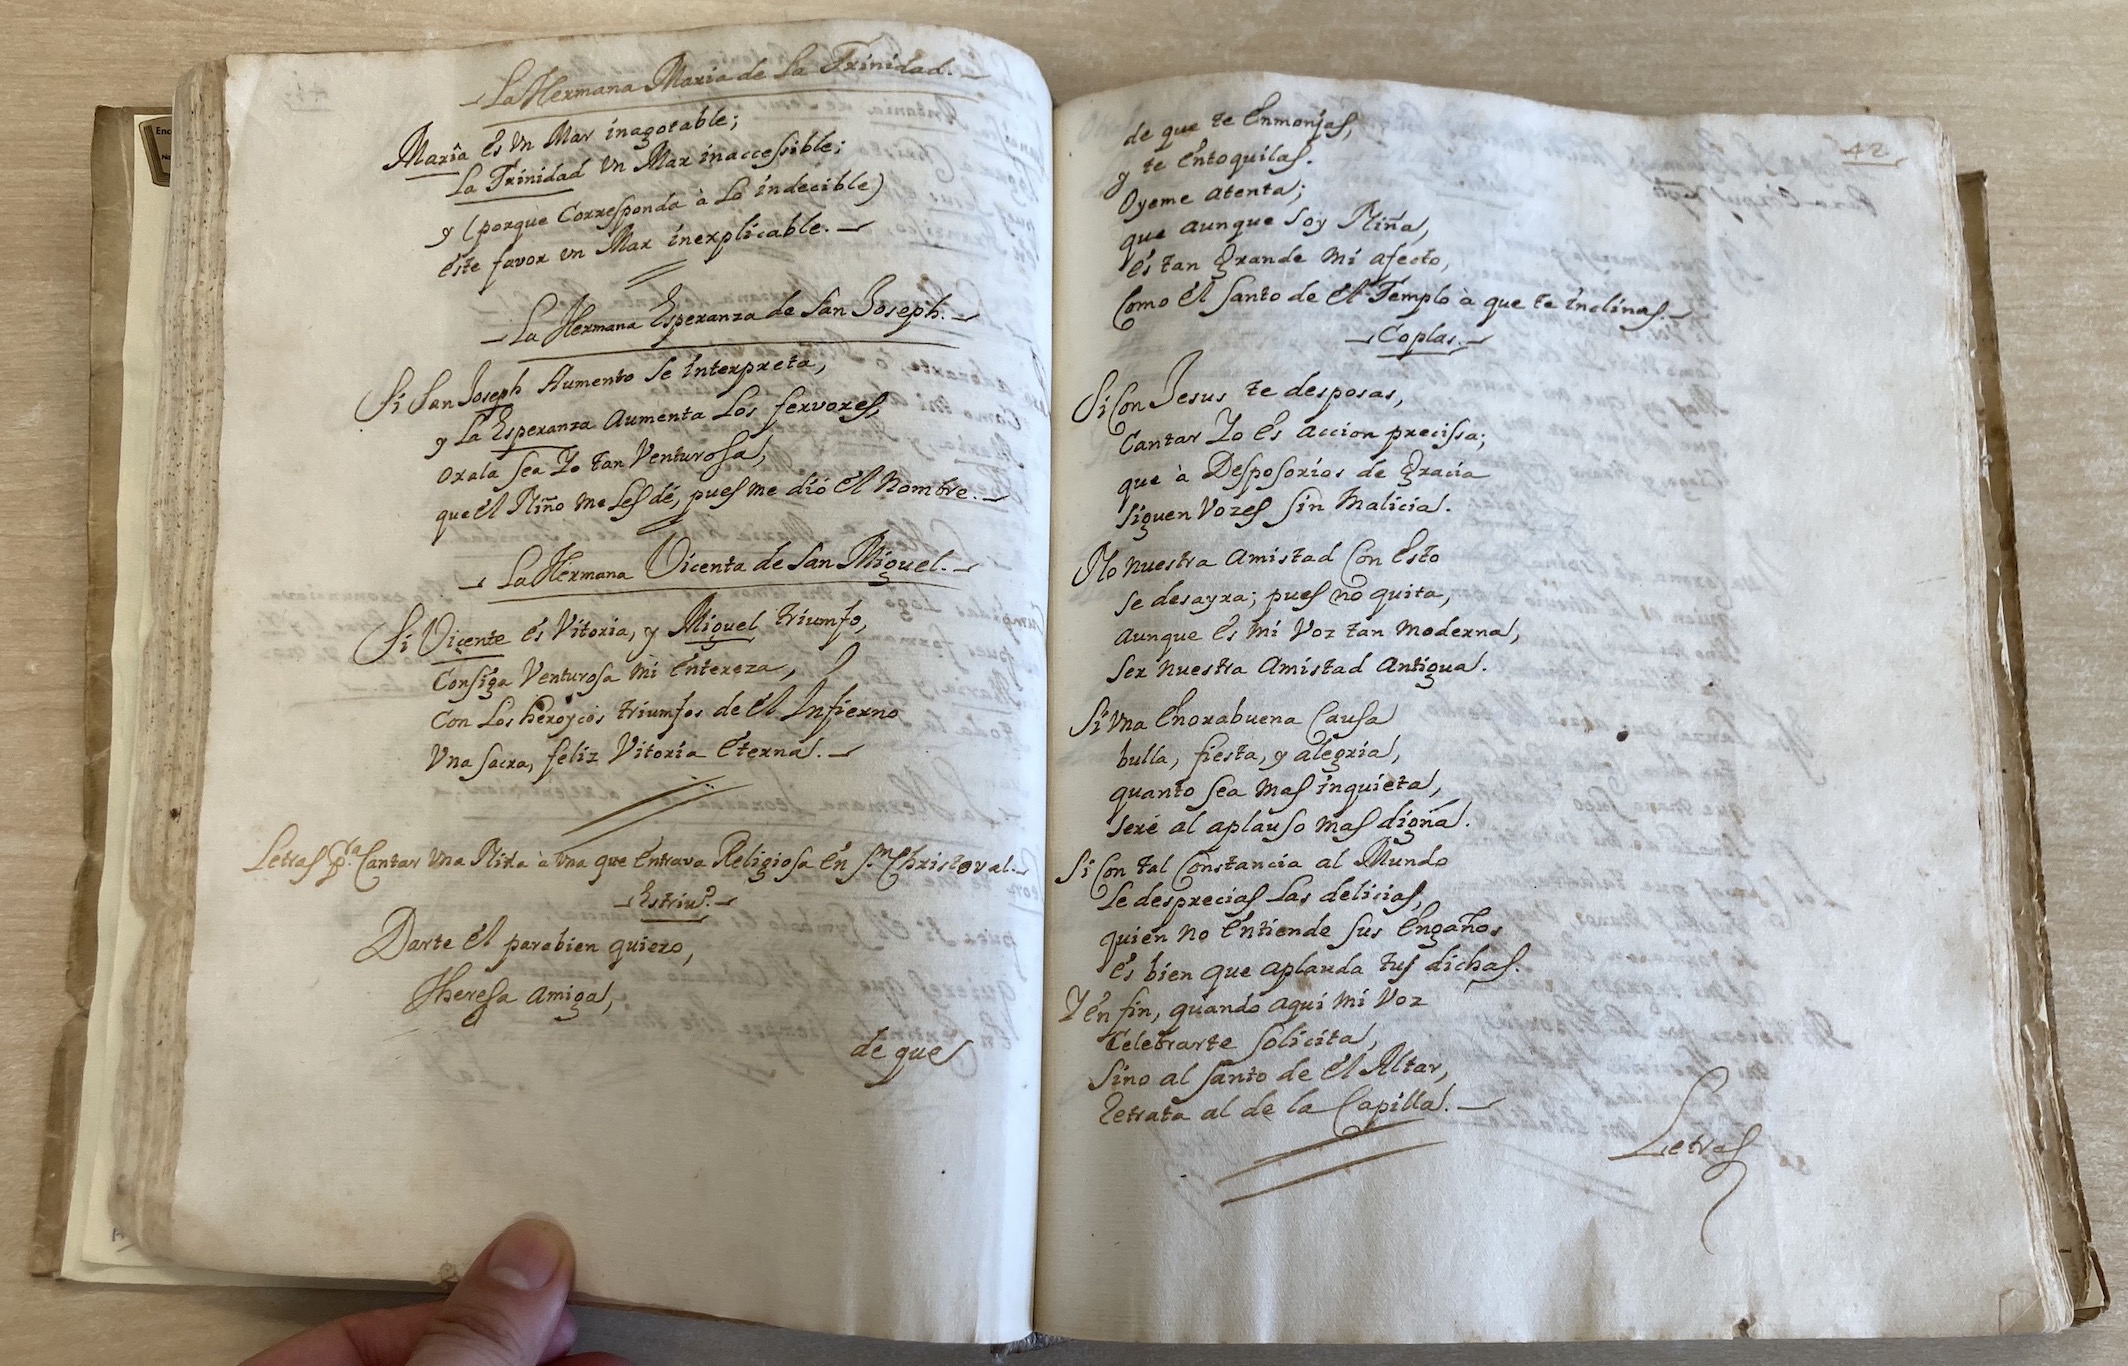 La Hermana Maria de la Trinidad.
Maria es Vn Mar inagotable;
La Trinidad Vn Mar inaccessible;
y (porque Corresponda à Lo indecible)
este favor vn Mar inexplicable.
La Hermana Esperanza de San Joseph.
Si San Joseph Aumento se interpreta,
y La Esperanza Aumenta Los fervores,
oxala sea Yo tan Venturosa,
que el Niño me Les dé, pues me dió el Nombre.
La Hermana Vicenta de San Miguel.
Si Vicente es Vitoria, y Miguel triumfo,
Consiga Venturosa Mi entereza,
Con Los heroycos triumfos de el Infierno
Vna sacra, feliz Vitoria eterna.
Letras p.ª Cantar Vna Niña à Vna que entrava Religiosa en S.n Christoval.
Estriv.º
Darte el parabien quiero,
Theresa amiga,
de que
42
de que te enmonjas,
y te entoquilas.
Oyeme atenta;
que aunque soy Niña,
es tan grande mi afecto,
Como el santo de el Templo à que te inclinas.
Coplas.
Si Con Jesus te desposas,
Cantar Yo es accion precissa;
que à Desposorios de gracia
siguen Vozes sin Malicia.
No nuestra amistad Con esto
se desayra; pues no quita,
aunque es mi Voz tan moderna,
ser nuestra Amistad antigua.
Si Vna enorabuena Causa
bulla, fiesta, y alegria,
quanto sea mas inquieta,
serè al aplauso mas digna.
Si Con tal Constancia al Mundo
Le desprecias Las delicias,
quien no entiende sus engaños
es bien que aplauda tus dichas.
Y en fin, quando aqui mi Voz
Celebrarte solicita,
sino al santo de el Altar,
retrata al de la Capilla.
Letras